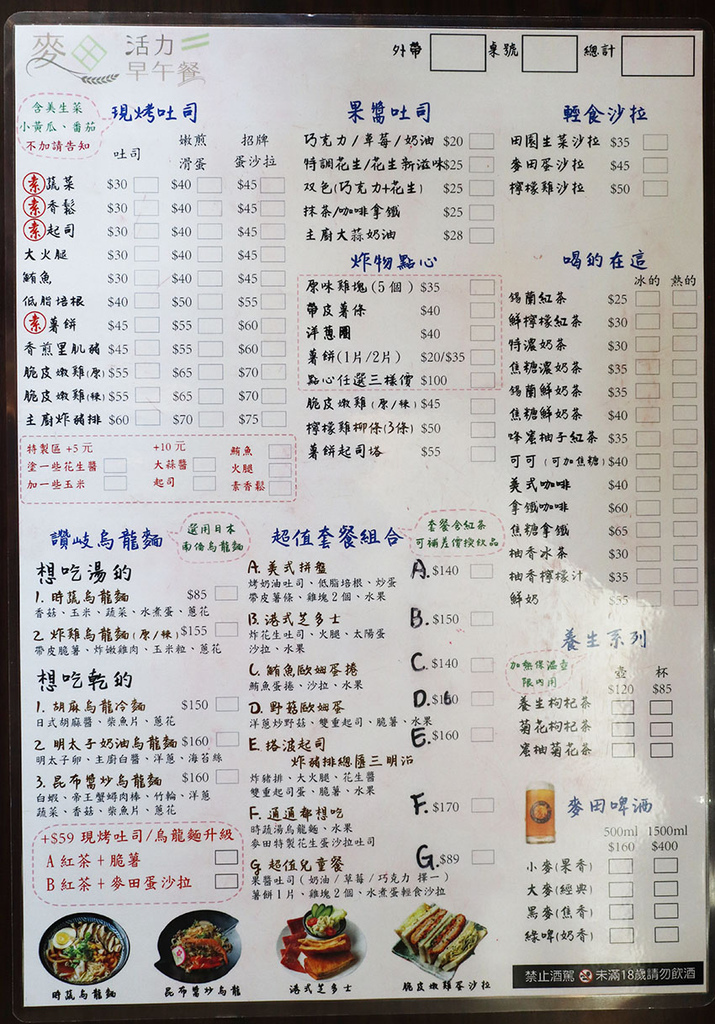 麥田 活力早午餐
外帶 桌號 總計
含美生菜
小黃瓜、番茄
不加請告知
現烤吐司
吐司 嫩煎滑蛋 招牌蛋沙拉
素 蔬菜 $30 $40 $45
素 香鬆 $30 $40 $45
素 起司 $30 $40 $45
大火腿 $30 $40 $45
鮪魚 $30 $40 $45
低脂培根 $40 $50 $55
素 薯餅 $45 $55 $60
香煎里肌豬 $45 $55 $60
脆皮嫩雞(原) $55 $65 $70
脆皮嫩雞(辣) $55 $65 $70
主廚炸豬排 $60 $70 $75
特製區 +5 元 +10 元 鮪魚
塗一些花生醬 大蒜醬 火腿
加一些玉米 起司 素香鬆
果醬吐司
巧克力/草莓/奶油 $20
特調花生/花生新滋味 $25
双包(巧克力+花生) $25
抹茶/咖啡拿鐵 $25
主廚大蒜奶油 $28
炸物點心
原味雞塊(5個) $35
帶皮薯條 $40
洋蔥圈 $40
薯餅(1片/2片) $20/$35
點心任選三樣價 $100
脆皮嫩雞(原/辣) $45
檸檬雞柳條(3條) $50
薯餅起司塔 $55
輕食沙拉
田園生菜沙拉 $35
麥田蛋沙拉 $45
檸檬雞沙拉 $50
喝的在這
冰的 熱的
錫蘭紅茶 $25
鮮檸檬紅茶 $30
特濃奶茶 $30
焦糖濃奶茶 $35
錫蘭鮮奶茶 $35
焦糖鮮奶茶 $40
蜂蜜柚子紅茶 $35
可可(可加焦糖) $40
美式咖啡 $40
拿鐵咖啡 $60
焦糖拿鐵 $65
柚香冰茶 $30
柚香檸檬汁 $35
鮮奶 $55
讚岐烏龍麵
選用日本
兩倍烏龍麵
想吃湯的
1. 時蔬烏龍麵 $85
香菇、玉米、蔬菜、水煮蛋、蔥花
2. 炸雞烏龍麵(原/辣) $155
帶皮脆薯、炸嫩雞肉、玉米粒、蔥花
想吃乾的
1. 胡麻烏龍冷麵 $150
日式胡麻醬、柴魚片、蔥花
2. 明太子奶油烏龍麵 $160
明太子卵、主廚白醬、洋蔥、海苔絲
3. 昆布醬炒烏龍麵 $160
白蝦、帝王蟹蟳肉棒、竹輪、洋蔥
蔬菜、香菇、柴魚片、蔥花
+$59 現烤吐司/烏龍麵升級
A 紅茶 + 脆薯
B 紅茶 + 麥田蛋沙拉
超值套餐組合
套餐含紅茶
可補差價換飲品
A. 美式拼盤 A. $140
烤奶油吐司、低脂培根、炒蛋
帶皮薯條、雞塊2個、水果
B. 港式芝多士 B. $150
炸花生吐司、火腿、太陽蛋
沙拉、水果
C. 鮪魚歐姆蛋捲 C. $140
鮪魚蛋捲、沙拉、水果
D. 野菇歐姆蛋 D.
洋蔥炒野菇、雙重起司、脆薯、水果
E. 塔波起司 E. $160
炸豬排總匯三明治
炸豬排、大火腿、花生醬
雙重起司蛋、脆薯、水果
F. 通通都想吃 F. $170
時蔬湯烏龍麵、水果
麥田特製花生蛋沙拉吐司
G. 超值兒童餐 G. $89
果醬吐司(奶油/草莓/巧克力 擇一)
薯餅1片、雞塊2個、水煮蛋輕食沙拉
養生系列
加熱保溫壺
限內用
壺 杯
$120 $85
養生枸杞茶
菊花枸杞茶
蜜柚菊花茶
麥田啤酒
500ml 1500ml
$160 $400
小麥(果香)
大麥(經典)
黑麥(焦香)
綠啤(奶香)
禁止酒駕 未滿18歲請勿飲酒
時蔬烏龍麵 昆布醬炒烏龍 港式芝多士 脆皮嫩雞蛋沙拉